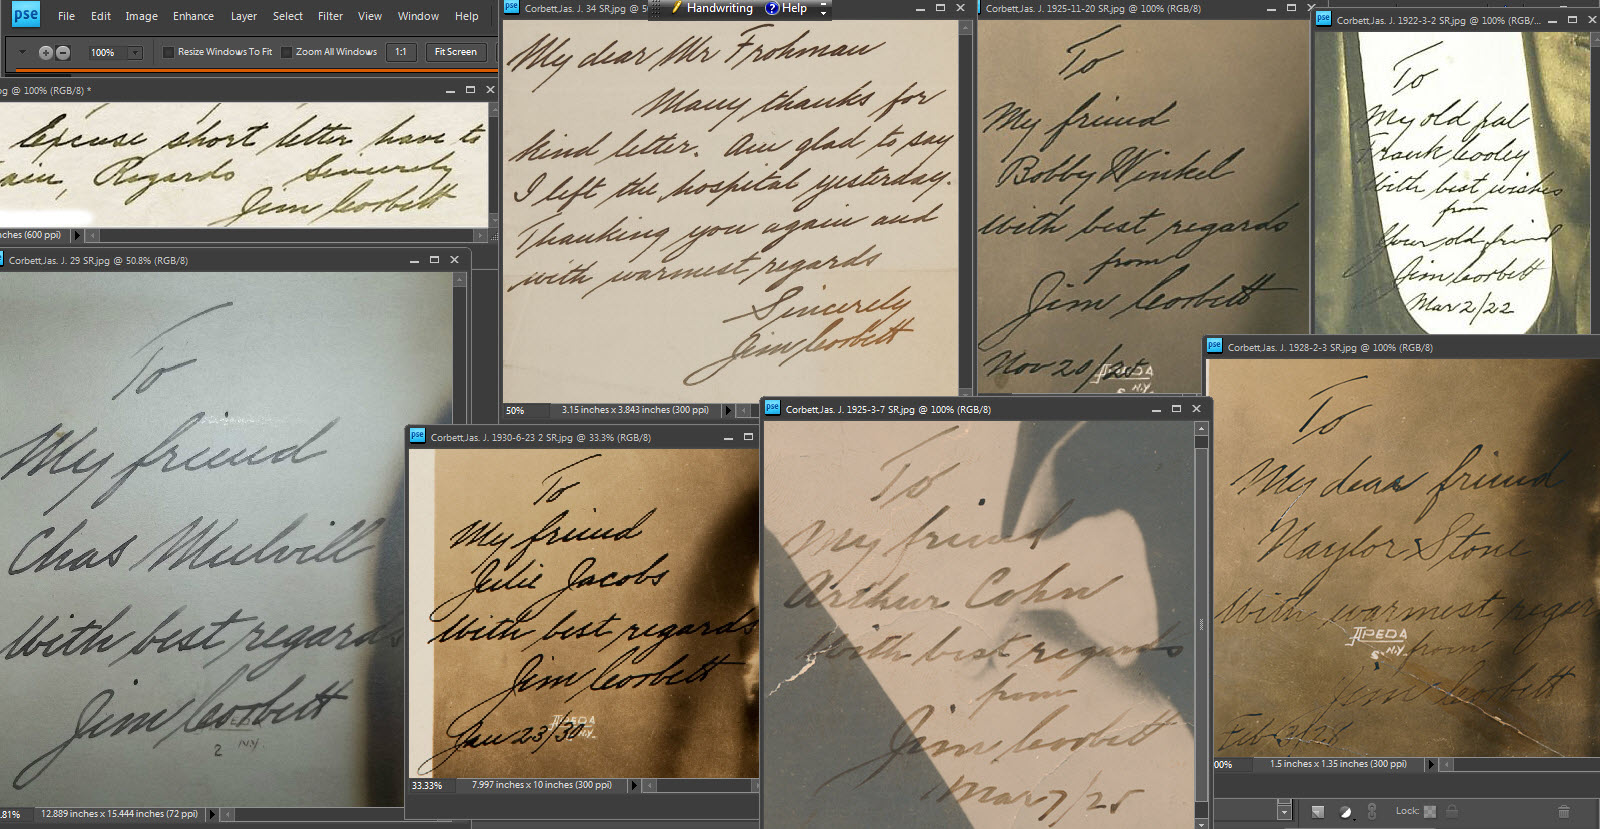 pse File Edit Image Enhance Layer Select Filter View Window Help
100% Resize Windows To Fit Zoom All Windows 1:1 Fit Screen
Handwriting Help
pg @ 100% (RGB/8) *
Excuse short letter have to
Regards Sincerely
Jim Corbett
nches (600 ppi)
Corbett,Jas. J. 34 SR.jpg @ 5
My dear Mr Frohman
Many thanks for
kind letter. Am glad to say
I left the hospital yesterday.
Thanking you again and
with warmest regards
Sincerely
Jim Corbett
50% 3.15 inches x 3.843 inches (300 ppi)
Corbett,Jas. J. 1925-11-20 SR.jpg @ 100% (RGB/8)
To
My friend
Bobby Winkel
With best regards
from
Jim Corbett
Nov 20/25
APEDA
N.Y.
pse Corbett,Jas. J. 1922-3-2 SR.jpg @ 100% (RGB/...
To
My old pal
Frank Cooley
With best wishes
from
Your old friend
Jim Corbett
Mar 2/22
Corbett,Jas. J. 29 SR.jpg @ 50.8% (RGB/8)
To
My friend
Chas Mulvill
With best regards
Jim Corbett
2 N.Y.
.81% 12.889 inches x 15.444 inches (72 ppi)
pse Corbett,Jas. J. 1930-6-23 2 SR.jpg @ 33.3% (RGB/8)
To
My friend
Julie Jacobs
With best regards
Jim Corbett
Jan 23/30
APEDA
N.Y.
33.33% 7.997 inches x 10 inches (300 ppi)
pse Corbett,Jas. J. 1925-3-7 SR.jpg @ 100% (RGB/8)
To
My friend
Arthur Cohn
With best regards
from
Jim Corbett
Mar 7/25
pse Corbett,Jas. J. 1928-2-3 SR.jpg @ 100% (RGB/8)
To
My dear friend
Naylor Stone
With warmest regar
from
Jim Corbett
Feb 3/28
APEDA
N.Y.
00% 1.5 inches x 1.35 inches (300 ppi)
Lock: